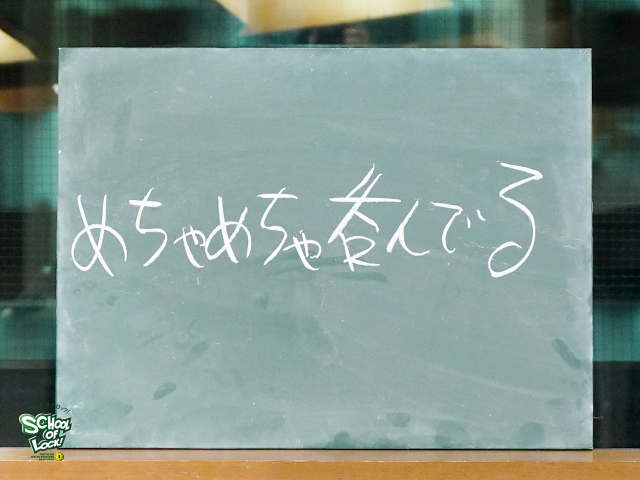 めちゃめちゃ呑んでる
SCHOOL
OF
LOCK!